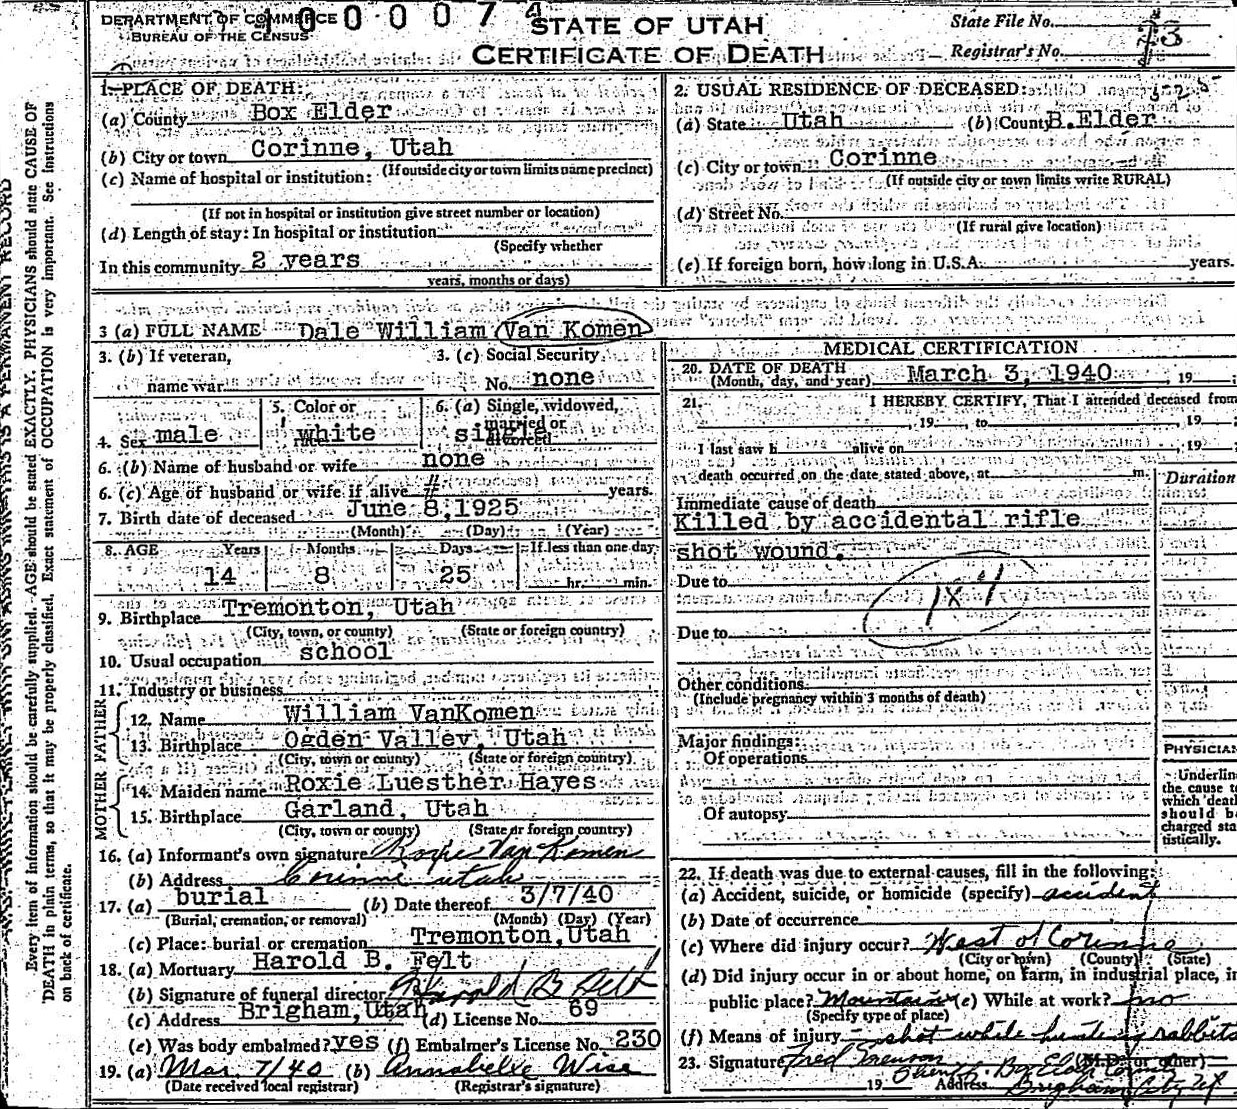 DEPARTMENT OF COMMERCE
BUREAU OF THE CENSUS
0 0 0 0 7 4
STATE OF UTAH
CERTIFICATE OF DEATH
State File No.
Registrar's No. 3
1. PLACE OF DEATH:
(a) County Box Elder
(b) City or town Corinne, Utah
(If outside city or town limits name precinct)
(c) Name of hospital or institution:
(If not in hospital or institution give street number or location)
(d) Length of stay: In hospital or institution
(Specify whether
In this community 2 years
years, months or days)
2. USUAL RESIDENCE OF DECEASED:
(a) State Utah (b) County B.Elder
(c) City or town Corinne
(If outside city or town limits write RURAL)
(d) Street No.
(If rural give location)
(e) If foreign born, how long in U.S.A. years.
3 (a) FULL NAME Dale William Van Komen
3. (b) If veteran, name war
3. (c) Social Security No. none
4. Sex male
5. Color or white
6. (a) Single, widowed, married or divorced single
6. (b) Name of husband or wife none
6. (c) Age of husband or wife if alive # years.
7. Birth date of deceased June 8, 1925
(Month) (Day) (Year)
8. AGE Years Months Days If less than one day
14 8 25 hr. min.
9. Birthplace Tremonton, Utah
(City, town, or county) (State or foreign country)
10. Usual occupation school
11. Industry or business
FATHER
12. Name William VanKomen
13. Birthplace Ogden Valley, Utah
(City, town or county) (State or foreign country)
MOTHER
14. Maiden name Roxie Luesther Hayes
15. Birthplace Garland, Utah
(City, town or county) (State or foreign country)
16. (a) Informant's own signature Roxie Van Komen
(b) Address Corinne Utah
17. (a) burial (b) Date thereof 3/7/40
(Burial, cremation, or removal) (Month) (Day) (Year)
(c) Place: burial or cremation Tremonton, Utah
18. (a) Mortuary Harold B. Felt
(b) Signature of funeral director Harold B Felt
(c) Address Brigham, Utah (d) License No. 69
(e) Was body embalmed? yes (f) Embalmer's License No. 230
19. (a) Mar. 7/40 (b) Annabelle Wise
(Date received local registrar) (Registrar's signature)
MEDICAL CERTIFICATION
20. DATE OF DEATH
(Month, day, and year) March 3, 1940, 19
21. I HEREBY CERTIFY, That I attended deceased from
, 19 , to , 19
I last saw h alive on , 19
death occurred on the date stated above, at m.
Duration
Immediate cause of death
Killed by accidental rifle
shot wound.
Due to
Due to
Other conditions
(Include pregnancy within 3 months of death)
Major findings:
Of operations
Of autopsy
PHYSICIAN
Underline
the cause to
which death
should be
charged sta
tistically.
22. If death was due to external causes, fill in the following:
(a) Accident, suicide, or homicide (specify) accident
(b) Date of occurrence
(c) Where did injury occur? West of Corinne
(City or town) (County) (State)
(d) Did injury occur in or about home, on farm, in industrial place, in
public place? Mountain (e) While at work? no
(Specify type of place)
(f) Means of injury shot while hunting rabbits
23. Signature (M.D. or other)
19 Address Brigham City Ut
Every item of information should be carefully supplied. AGE should be stated EXACTLY. PHYSICIANS should state CAUSE OF
DEATH in plain terms, so that it may be properly classified. Exact statement of OCCUPATION is very important. See instructions
on back of certificate.